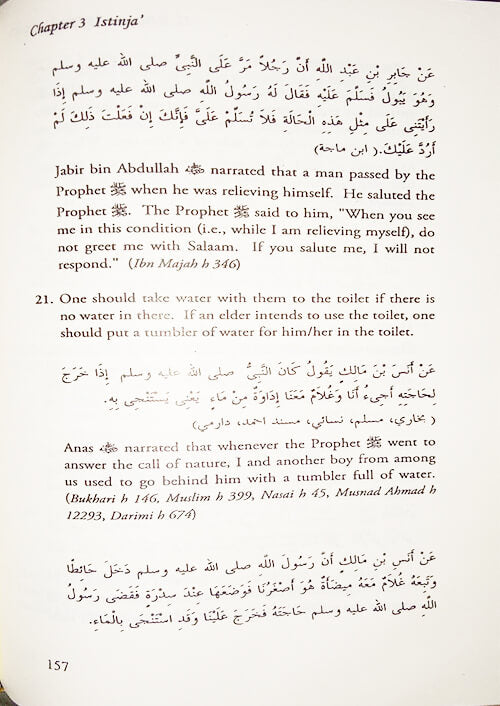 Chapter 3 Istinja'
عَنْ جَابِرِ بْنِ عَبْدِ اللَّهِ أَنَّ رَجُلاً مَرَّ عَلَى النَّبِيِّ صلى الله عليه وسلم
وَهُوَ يَبُولُ فَسَلَّمَ عَلَيْهِ فَقَالَ لَهُ رَسُولُ اللَّهِ صلى الله عليه وسلم إِذَا
رَأَيْتَنِي عَلَى مِثْلِ هَذِهِ الْحَالَةِ فَلاَ تُسَلِّمْ عَلَيَّ فَإِنَّكَ إِنْ فَعَلْتَ ذَلِكَ لَمْ
أَرُدَّ عَلَيْكَ.( ابن ماجة)
Jabir bin Abdullah ؓ narrated that a man passed by the
Prophet ﷺ when he was relieving himself. He saluted the
Prophet ﷺ. The Prophet ﷺ said to him, "When you see
me in this condition (i.e., while I am relieving myself), do
not greet me with Salaam. If you salute me, I will not
respond." (Ibn Majah h 346)
21. One should take water with them to the toilet if there is
no water in there. If an elder intends to use the toilet, one
should put a tumbler of water for him/her in the toilet.
عَنْ أَنَسَ بْنَ مَالِكٍ يَقُولُ كَانَ النَّبِيُّ صلى الله عليه وسلم إِذَا خَرَجَ
لِحَاجَتِهِ أَجِيءُ أَنَا وَغُلاَمٌ مَعَنَا إِدَاوَةٌ مِنْ مَاءٍ يَعْنِي يَسْتَنْجِي بِهِ.
( بخاري، مسلم، نسائي، مسند احمد، دارمي)
Anas ؓ narrated that whenever the Prophet ﷺ went to
answer the call of nature, I and another boy from among
us used to go behind him with a tumbler full of water.
(Bukhari h 146, Muslim h 399, Nasai h 45, Musnad Ahmad h
12293, Darimi h 674)
عَنْ أَنَسِ بْنِ مَالِكٍ أَنَّ رَسُولَ اللَّهِ صلى الله عليه وسلم دَخَلَ حَائِطًا
وَتَبِعَهُ غُلاَمٌ مَعَهُ مِيضَأَةٌ هُوَ أَصْغَرُنَا فَوَضَعَهَا عِنْدَ سِدْرَةٍ فَقَضَى رَسُولُ
اللَّهِ صلى الله عليه وسلم حَاجَتَهُ فَخَرَجَ عَلَيْنَا وَقَدِ اسْتَنْجَى بِالْمَاءِ.
157